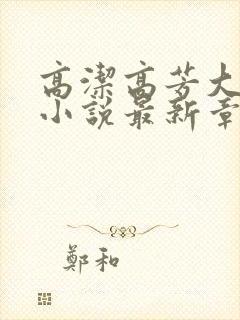 高潔高芳大
小說最新章
鄭和